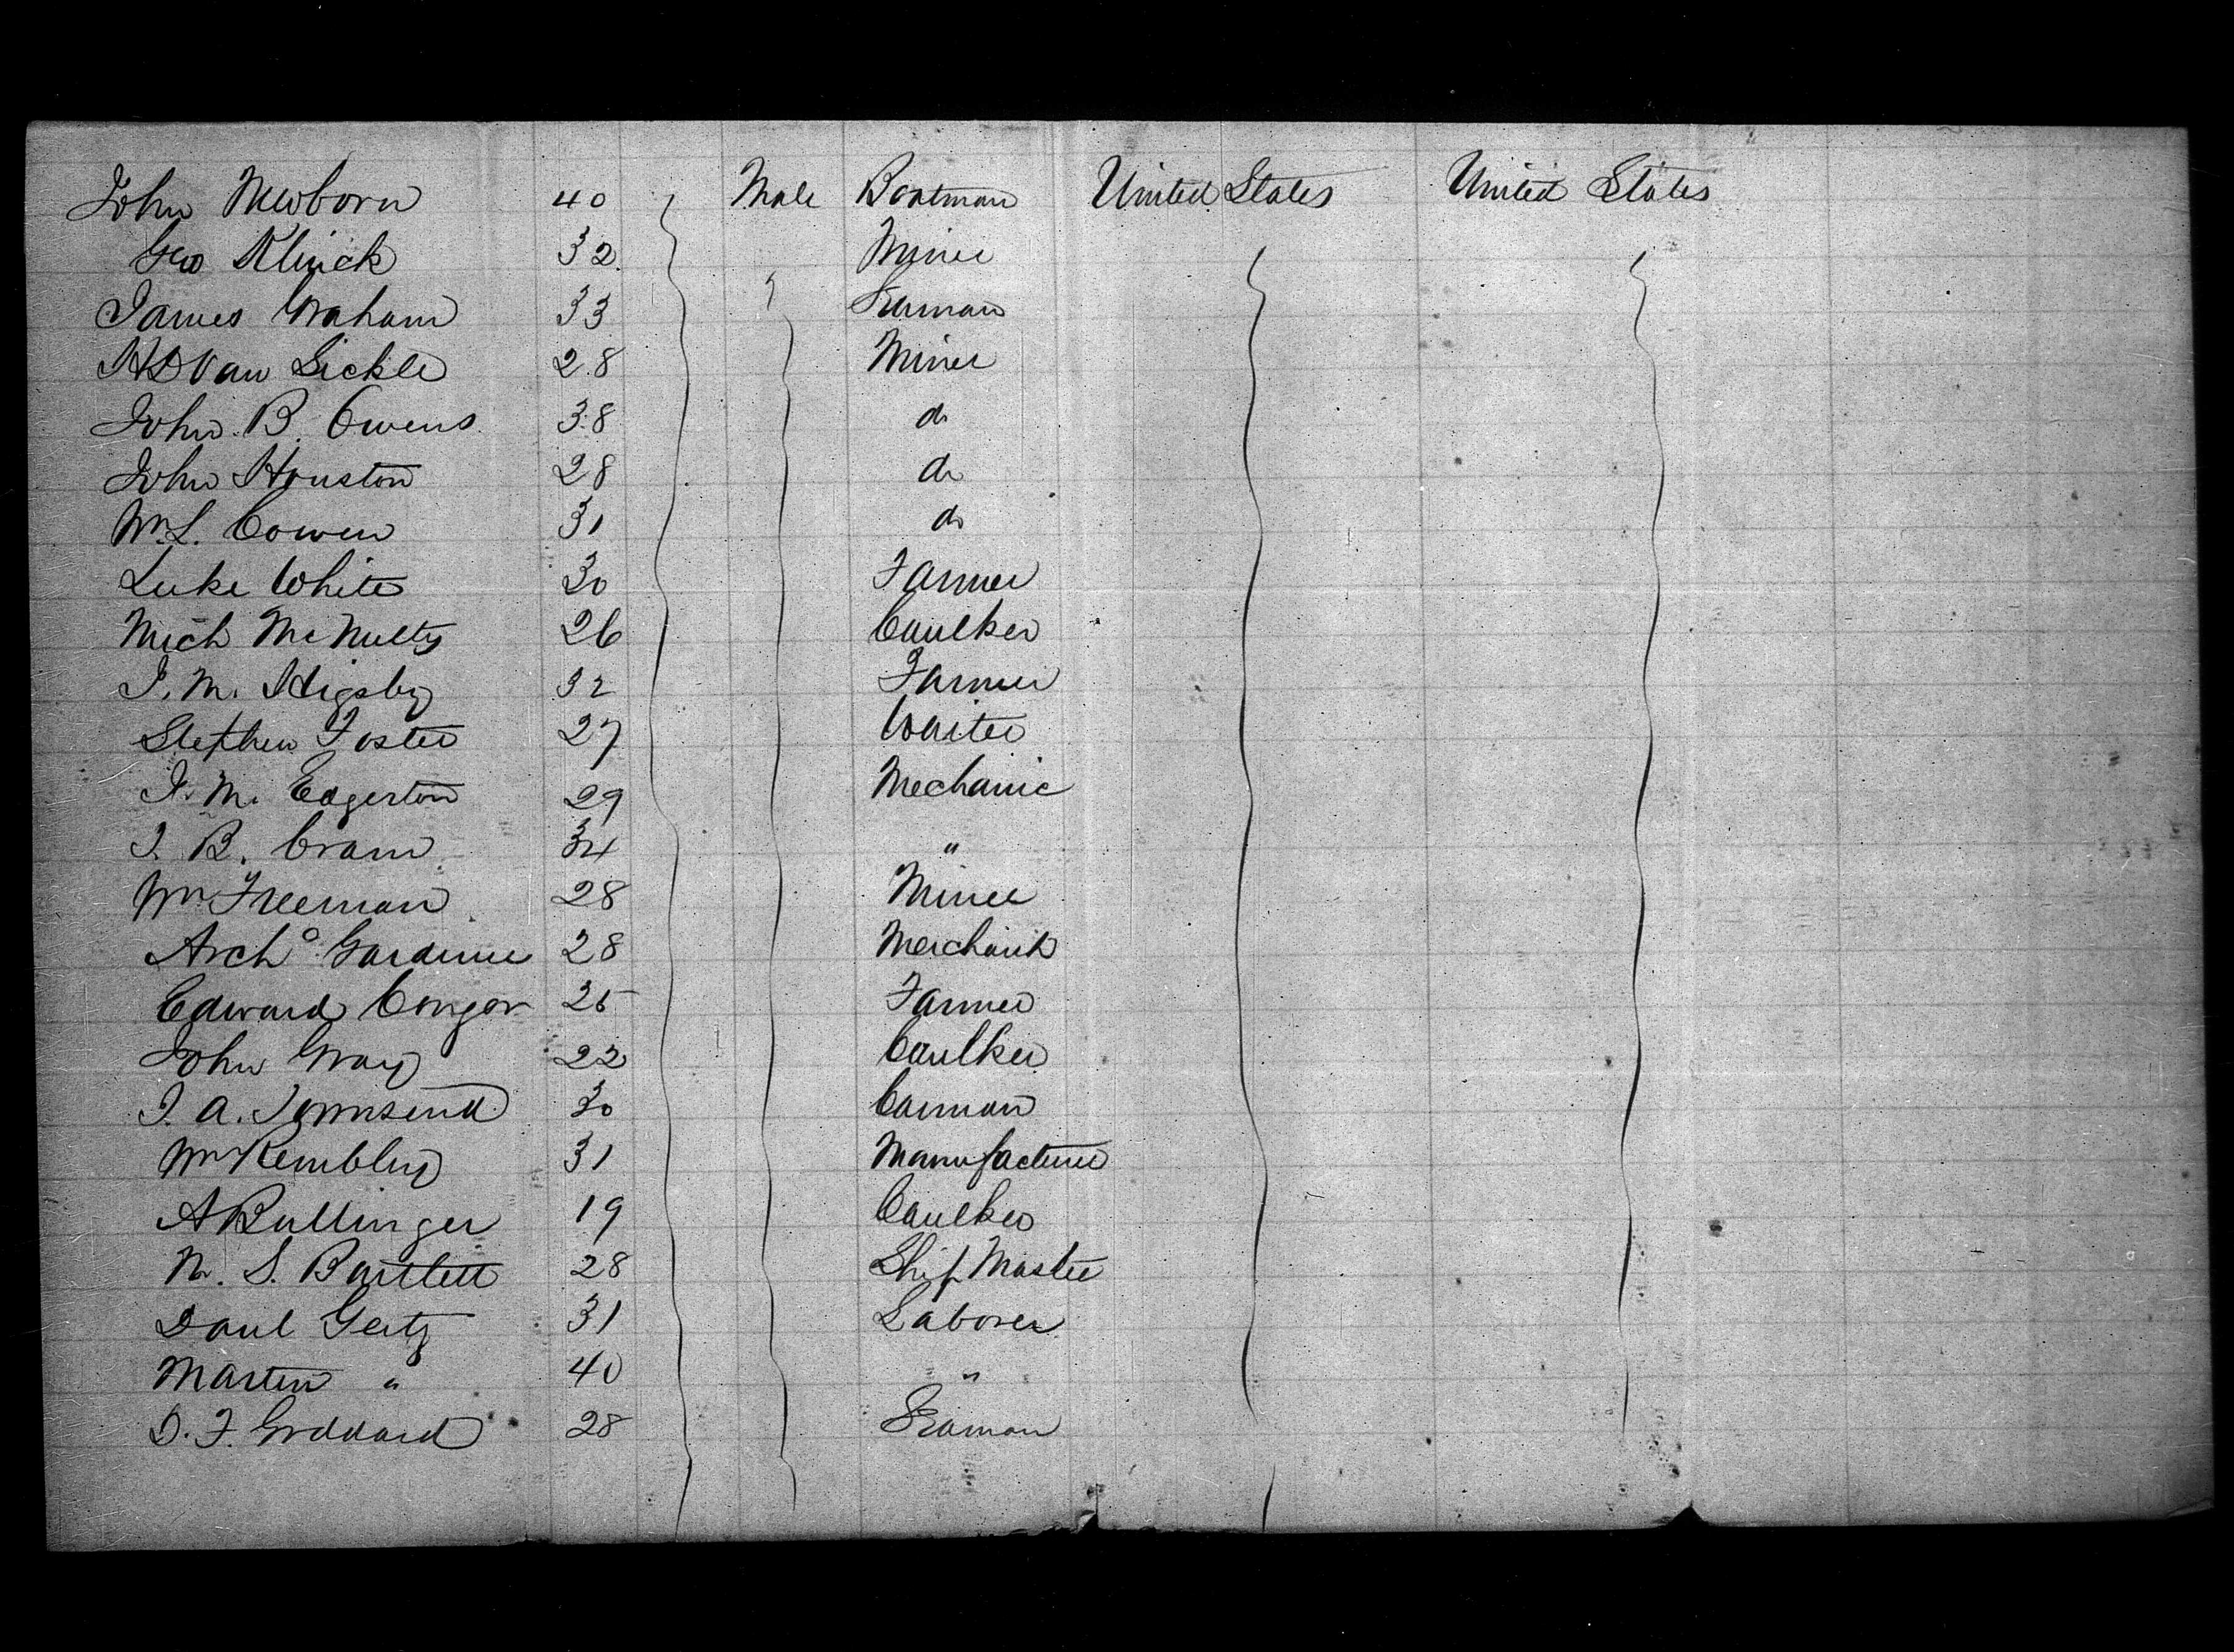 John Newborn 40 Male Boatman United States United States
Geo Klinck 32 Miner
James Graham 33 Seaman
H D Van Sickle 28 Miner
John B. Owens 38 do
John Houston 28 do
Wm. L. Cowen 31 do
Luke White 30 Farmer
Mich McNulty 26 Caulker
J. M. Higsby 32 Farmer
Stephen Foster 27 Waiter
J. M. Edgerton 29 Mechanic
J. B. Cram 34 "
Wm Freeman 28 Miner
Archo Gardiner 28 Merchant
Edward Congor 25 Farmer
John Gray 22 Caulker
J. A. Townsend 30 Carman
Wm Kembling 31 Manufacturer
A Bullinger 19 Caulker
N. S. Bartlett 28 Ship Master
Danl Gertz 31 Laborer
Martin " 40 "
D. F. Goddard 28 Seaman